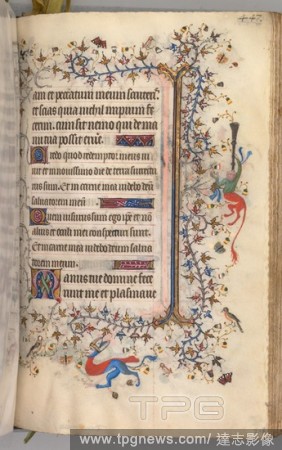 am et peccatum meum scruteris.
et scias quia nichil impium fe
cerim. cum sit nemo qui de ma
nu tua possit eruere.
Credo quod redemptor meus ui
uit et in nouissimo die de terra surrectu
rus sum. Et in carne mea uidebo deum
saluatorem meum
Quem uisurus sum ego ipse et no
alius et oculi mei conspecturi sunt.
Et in carne mea uidebo deum salua
torem meum.
Manus tue domine fece
runt me et plasmaue
TPG
www.tpgnews.com / 達志影像